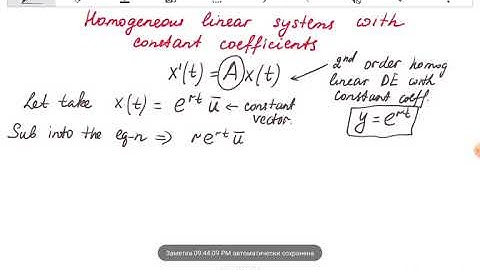 Homogeneous linear systems with
constant coefficients
x'(t) = A x(t)
2nd order homog
linear DE with
constant coeff.
y = e^rt
Let take x(t) = e^rt ū ← constant
vector.
Sub into the eq-n ⇒ r e^rt ū
Заметка 09:44:09 PM автоматически сохранена